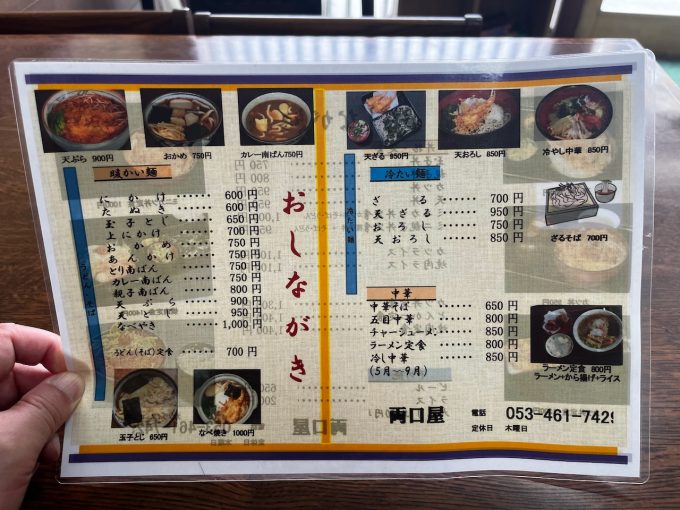 天ぷら 900円
おかめ 750円
カレー南ばん 750円
暖かい麺
うどん・そば
にかけ 600円
たぬき 600円
玉子とじ 650円
上にかけ 700円
おかめ 750円
あんかけ 750円
とり南ばん 750円
カレー南ばん 750円
親子南ばん 750円
天ぷら 900円
天とじ 950円
なべやき 1,000円
うどん(そば)定食 700円
玉子とじ 650円
なべ焼き 1000円
おしながき
天ざる 950円
天おろし 850円
冷やし中華 850円
冷たい麺
ざる 700円
天ざる 950円
おろし 750円
天おろし 850円
ざるそば 700円
中華
中華そば 650円
五目中華 800円
チャーシューメン 850円
ラーメン定食 800円
冷し中華 850円
(5月~9月)
ラーメン定食 800円
ラーメン+から揚げ+ライス
両口屋
電話 053-461-7429
定休日 木曜日